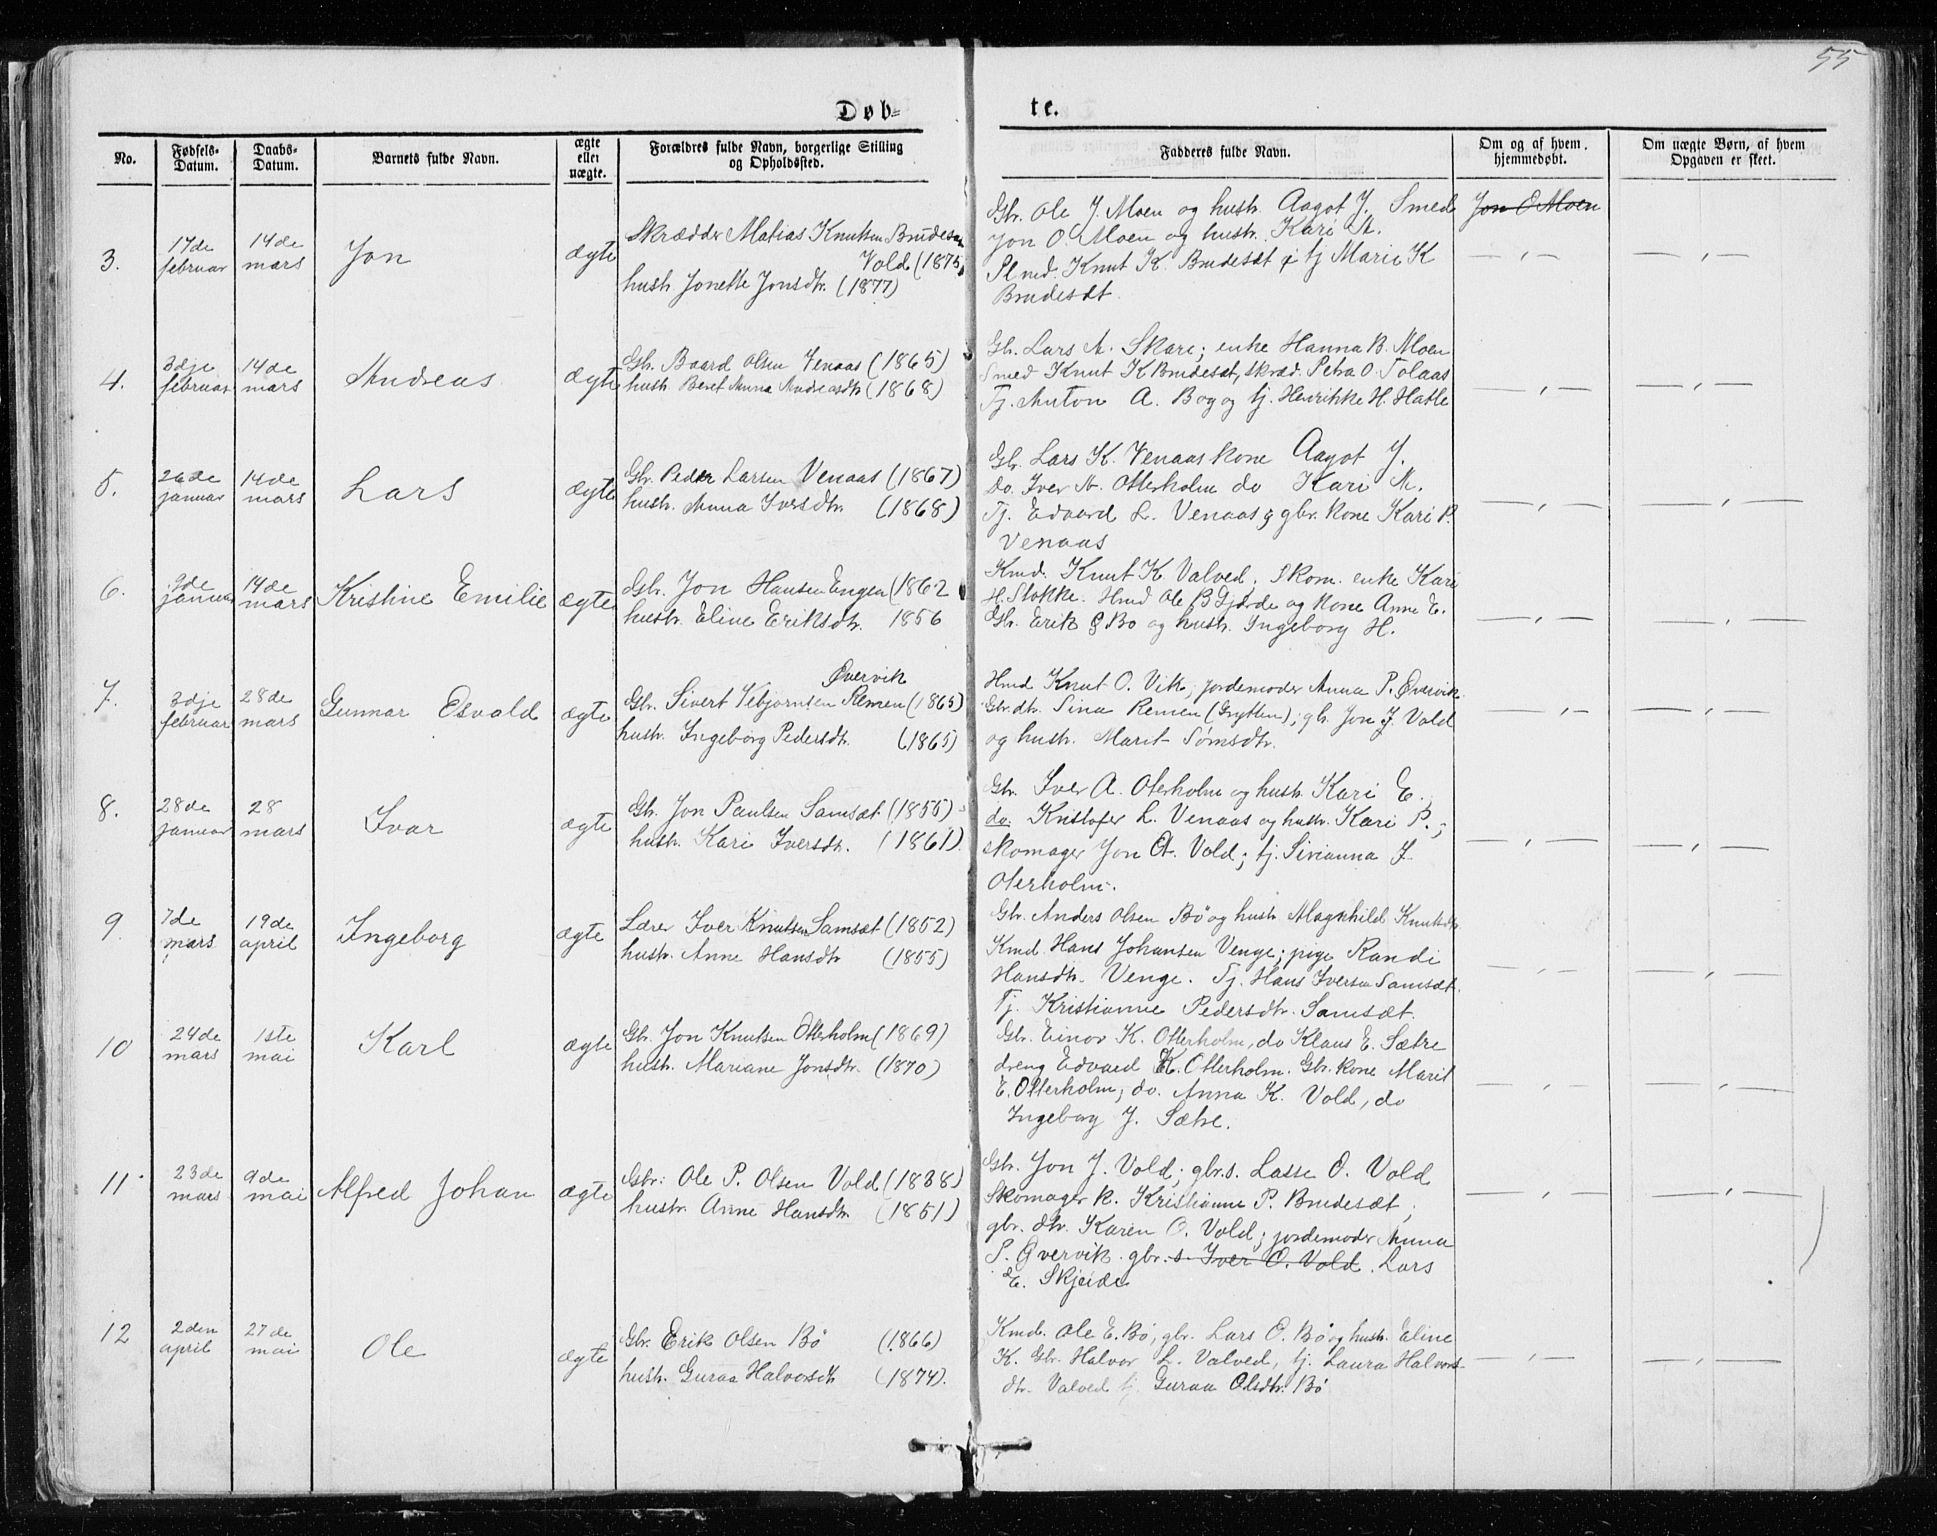 55
Døb=
te.
No.
Fødsels-
Datum.
Daabs-
Datum.
Barnets fulde Navn.
ægte
eller
uægte.
Forældres fulde Navn, borgerlige Stilling
og Opholdssted.
Fadderes fulde Navn.
Om og af hvem
hjemmedøbt.
Om uægte Børn, af hvem
Opgaven er skeet.
3.
17de
februar
14de
mars
Jon
ægte
Skrædder Matias Knutsen Brudesæt
Vold (1875)
hustr. Jonette Jonsdtr. (1877)
Gbr. Ole J. Moen og hustr. Aagot J. Smed
Jon O. Moen og hustr. Kari A.
Plmd. Knut K. Brudesæt tj Marie K
Brudesæt.
Jon O Moen
— „ —
— „ —
4.
3dje
februar
14de
mars
Andreas
ægte
Gbr. Baard Olsen Venaas (1865)
hustr. Beret Anna Andreasdtr (1868)
Gbr. Lars A. Skare; enke Hanna B. Moen
Smed Knut K Brudesæt, skræd. Petra O. Tolaas
Tj. Anton A. Bog og tj. Henrikke H. Hatle
— „ —
— „ —
5.
26de
januar
14de
mars
Lars
ægte
Gbr. Peder Larsen Venaas (1867)
hustr. Anna Iversdtr. (1868)
Gbr. Lars K. Venaas kone Aagot J.
Do. Iver A. Otterholm do Kari A.
Tj. Edvard L. Venaas & gbr. kone Kari P.
Venaas
— „ —
— „ —
6.
9de
januar
14de
mars
Kristine Emilie
ægte
Gbr. Jon Hansen Engen (1862
hustr. Eline Eriksdtr. 1856
Kmd. Knut K. Valved. Skom. enke Kari
H. Stokke. Hmd Ole B Gjærde og kone Anne E.
Gbr. Erik Bø og hustr. Ingeborg H.
— „ —
— „ —
7.
3dje
februar
28de
mars
Gunnar Osvald
ægte
Øvervik
Gbr. Sivert Vebjørnsen Remen (1865)
hustr. Ingeborg Pedersdtr. (1865)
Hmd Knut O. Vik; jordemoder Anna P. Øvervik
Gbr.dtr. Sina Remen (Grytten); gbr. Jon J. Vold
og hustr. Marit Tømsdtr.
— „ —
— „ —
8.
28de
januar
28
mars
Ivar
ægte
Gbr. Jon Paulsen Samsæt (1855)
hustr. Kari Iversdtr. (1861).
Gbr. Iver A. Oterholm og hustr. Kari E.
do. Kristofer L. Venaas og hustr. Kari P.;
skomager Jon A. Vold; tj. Sivianna J.
Oterholm.
— „ —
— „ —
9
7de
mars
19de
april
Ingeborg
ægte
Lærer Iver Knutsen Samsæt (1852)
hustr. Anne Hansdtr (1855)
Gbr. Anders Olsen Bø og hustr Magnhild Knutsdtr.
Kmd. Hans Johansen Venge; pige Randi
Hansdtr. Venge. Tj. Hans Iversen Samsæt.
Tj. Kristianne Pedersdtr. Samsæt.
— „ —
— „ —
10
24de
mars
1ste
mai
Karl
ægte
Gbr. Jon Knutsen Otterholm (1869)
hustr. Mariane Jonsdtr. (1870)
Gbr. Einor K. Otterholm, do Klaus E. Sætre
dreng Edvard K. Otterholm. Gbr. kone Marit
E. Otterholm; do. Anna K. Vold, do
Ingeborg J. Sætre.
— „ —
— „ —
11
23de
mars
9de
mai
Alfred Johan
ægte
Gbr: Ole P. Olsen Vold (1838)
hustr. Anne Hansdtr. (1851)
Gbr. Jon J. Vold; gbr.s. Lasse O. Vold
Skomager k. Kristianne P. Brudesæt;
gbr. dtr. Karen O. Vold; jordemoder Anna
P. Øvervik. gbr. s. Iver O. Vold. Lars
E. Skjeide
— „ —
— „ —
12
2den
april
27de
mai
Ole
ægte
Gbr. Erik Olsen Bø (1866)
hustr. Guraa Halvorsdtr (1874).
Kmd. Ole E. Bø; gbr. Lars O. Bø og hustr. Eline
K. Gbr. Halvor L. Valved, tj. Laura Halvors-
dtr. Valved tj. Guraa Olsdtr. Bø
— „ —
— „ —